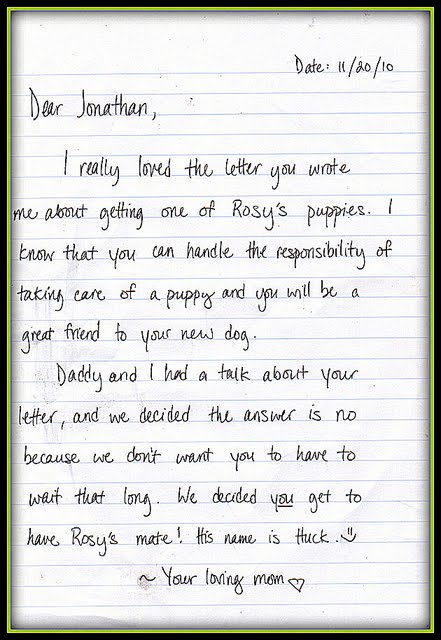 Date: 11/20/10
Dear Jonathan,
I really loved the letter you wrote
me about getting one of Rosy's puppies. I
know that you can handle the responsibility of
taking care of a puppy and you will be a
great friend to your new dog.
Daddy and I had a talk about your
letter, and we decided the answer is no
because we don't want you to have to
wait that long. We decided you get to
have Rosy's mate! His name is Huck.
~ Your loving mom